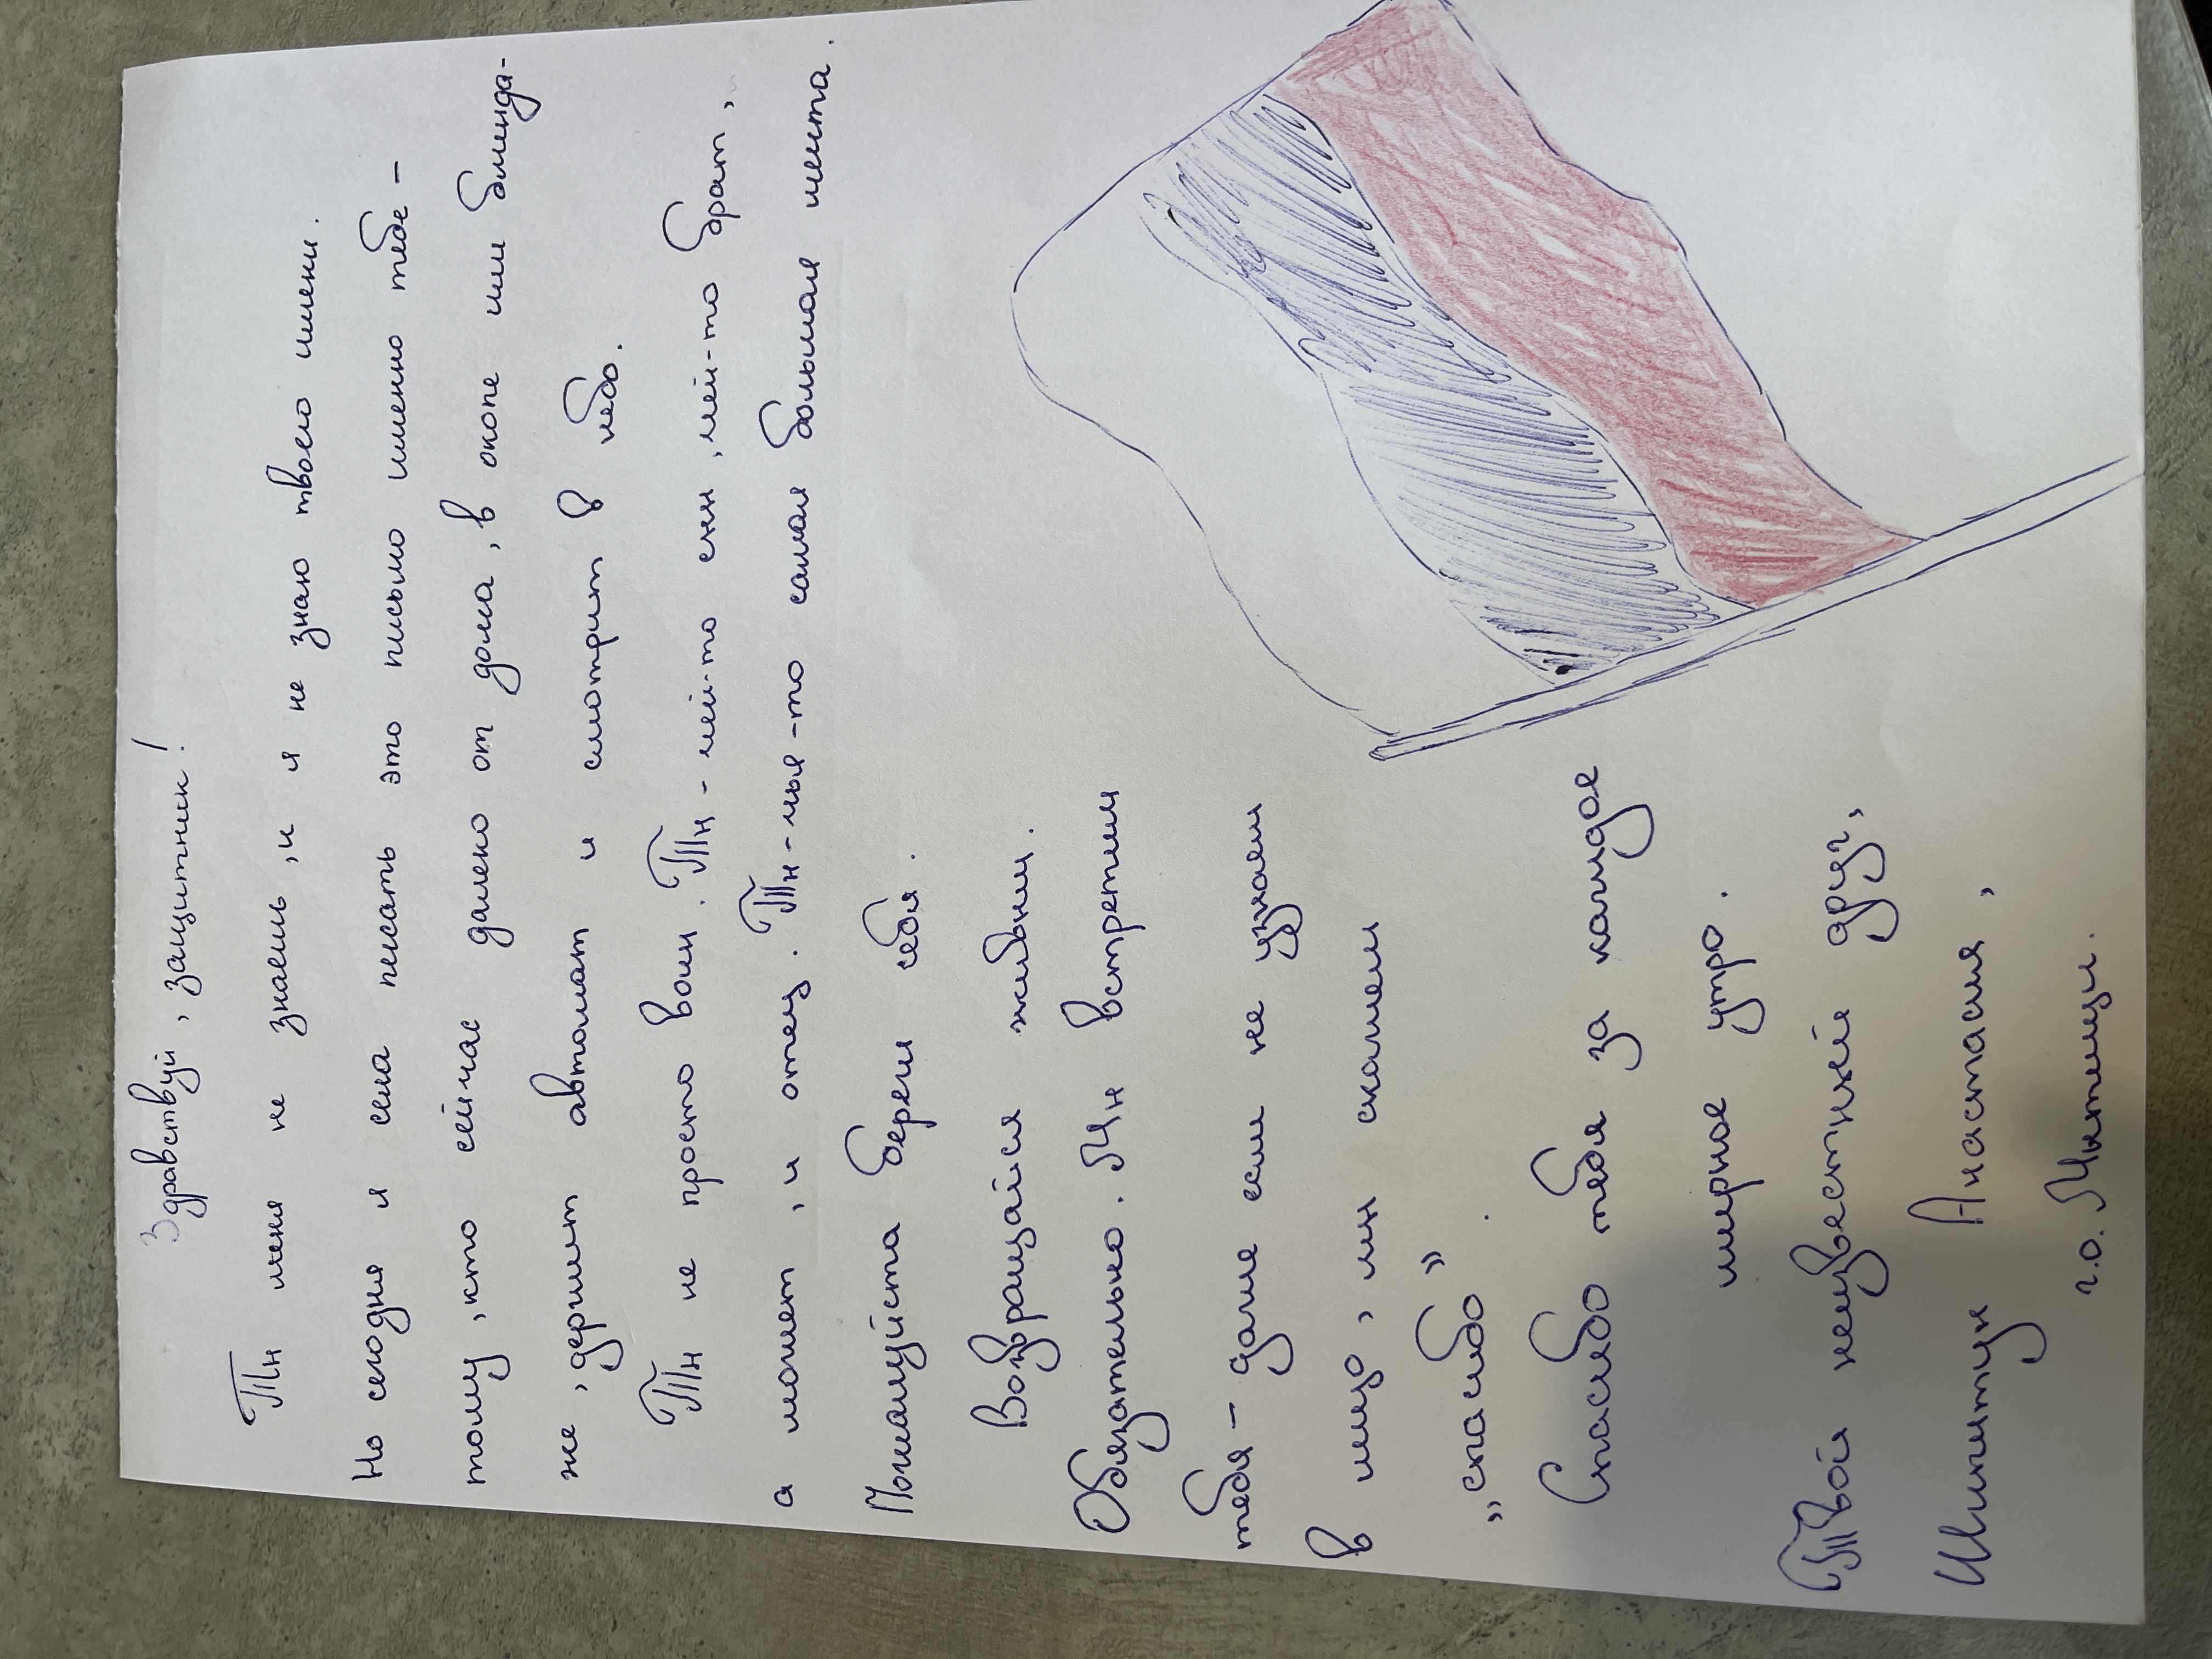 Здравствуй, защитник!
Ты меня не знаешь, и я не знаю твоего имени.
Но сегодня я села писать это письмо именно тебе –
тому, кто сейчас далеко от дома, в окопе или блинда-
же, держит автомат и смотрит в небо.
Ты не просто воин. Ты - чей-то сын, чей-то брат,
а может, и отец. Ты - чья-то самая большая мечта.
Пожалуйста береги себя.
Возвращайся живым.
Обязательно. Мы встретим
тебя – даже если не узнаем
в лицо, мы скажем
„спасибо”.
Спасибо тебе за каждое
мирное утро.
Твой неизвестный друг,
Шипитук Анастасия,
г.о. Мытищи.